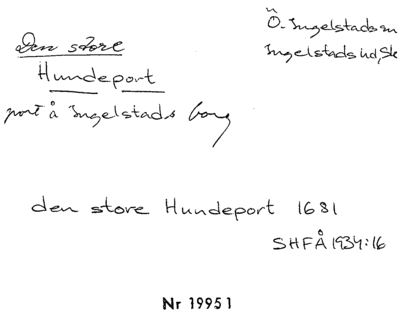 Den store
Hundeport
port å Ingelstads borg
Ö. Ingelstads sn
Ingelstads hd, Sk
den store Hundeport 1681
SHFÅ 1934:16
Nr 19951